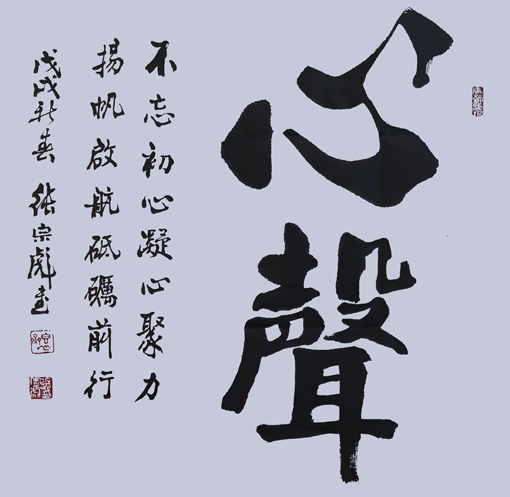 心聲
不忘初心凝心聚力
揚帆啟航砥礪前行
戊戌新春 張宗彪書